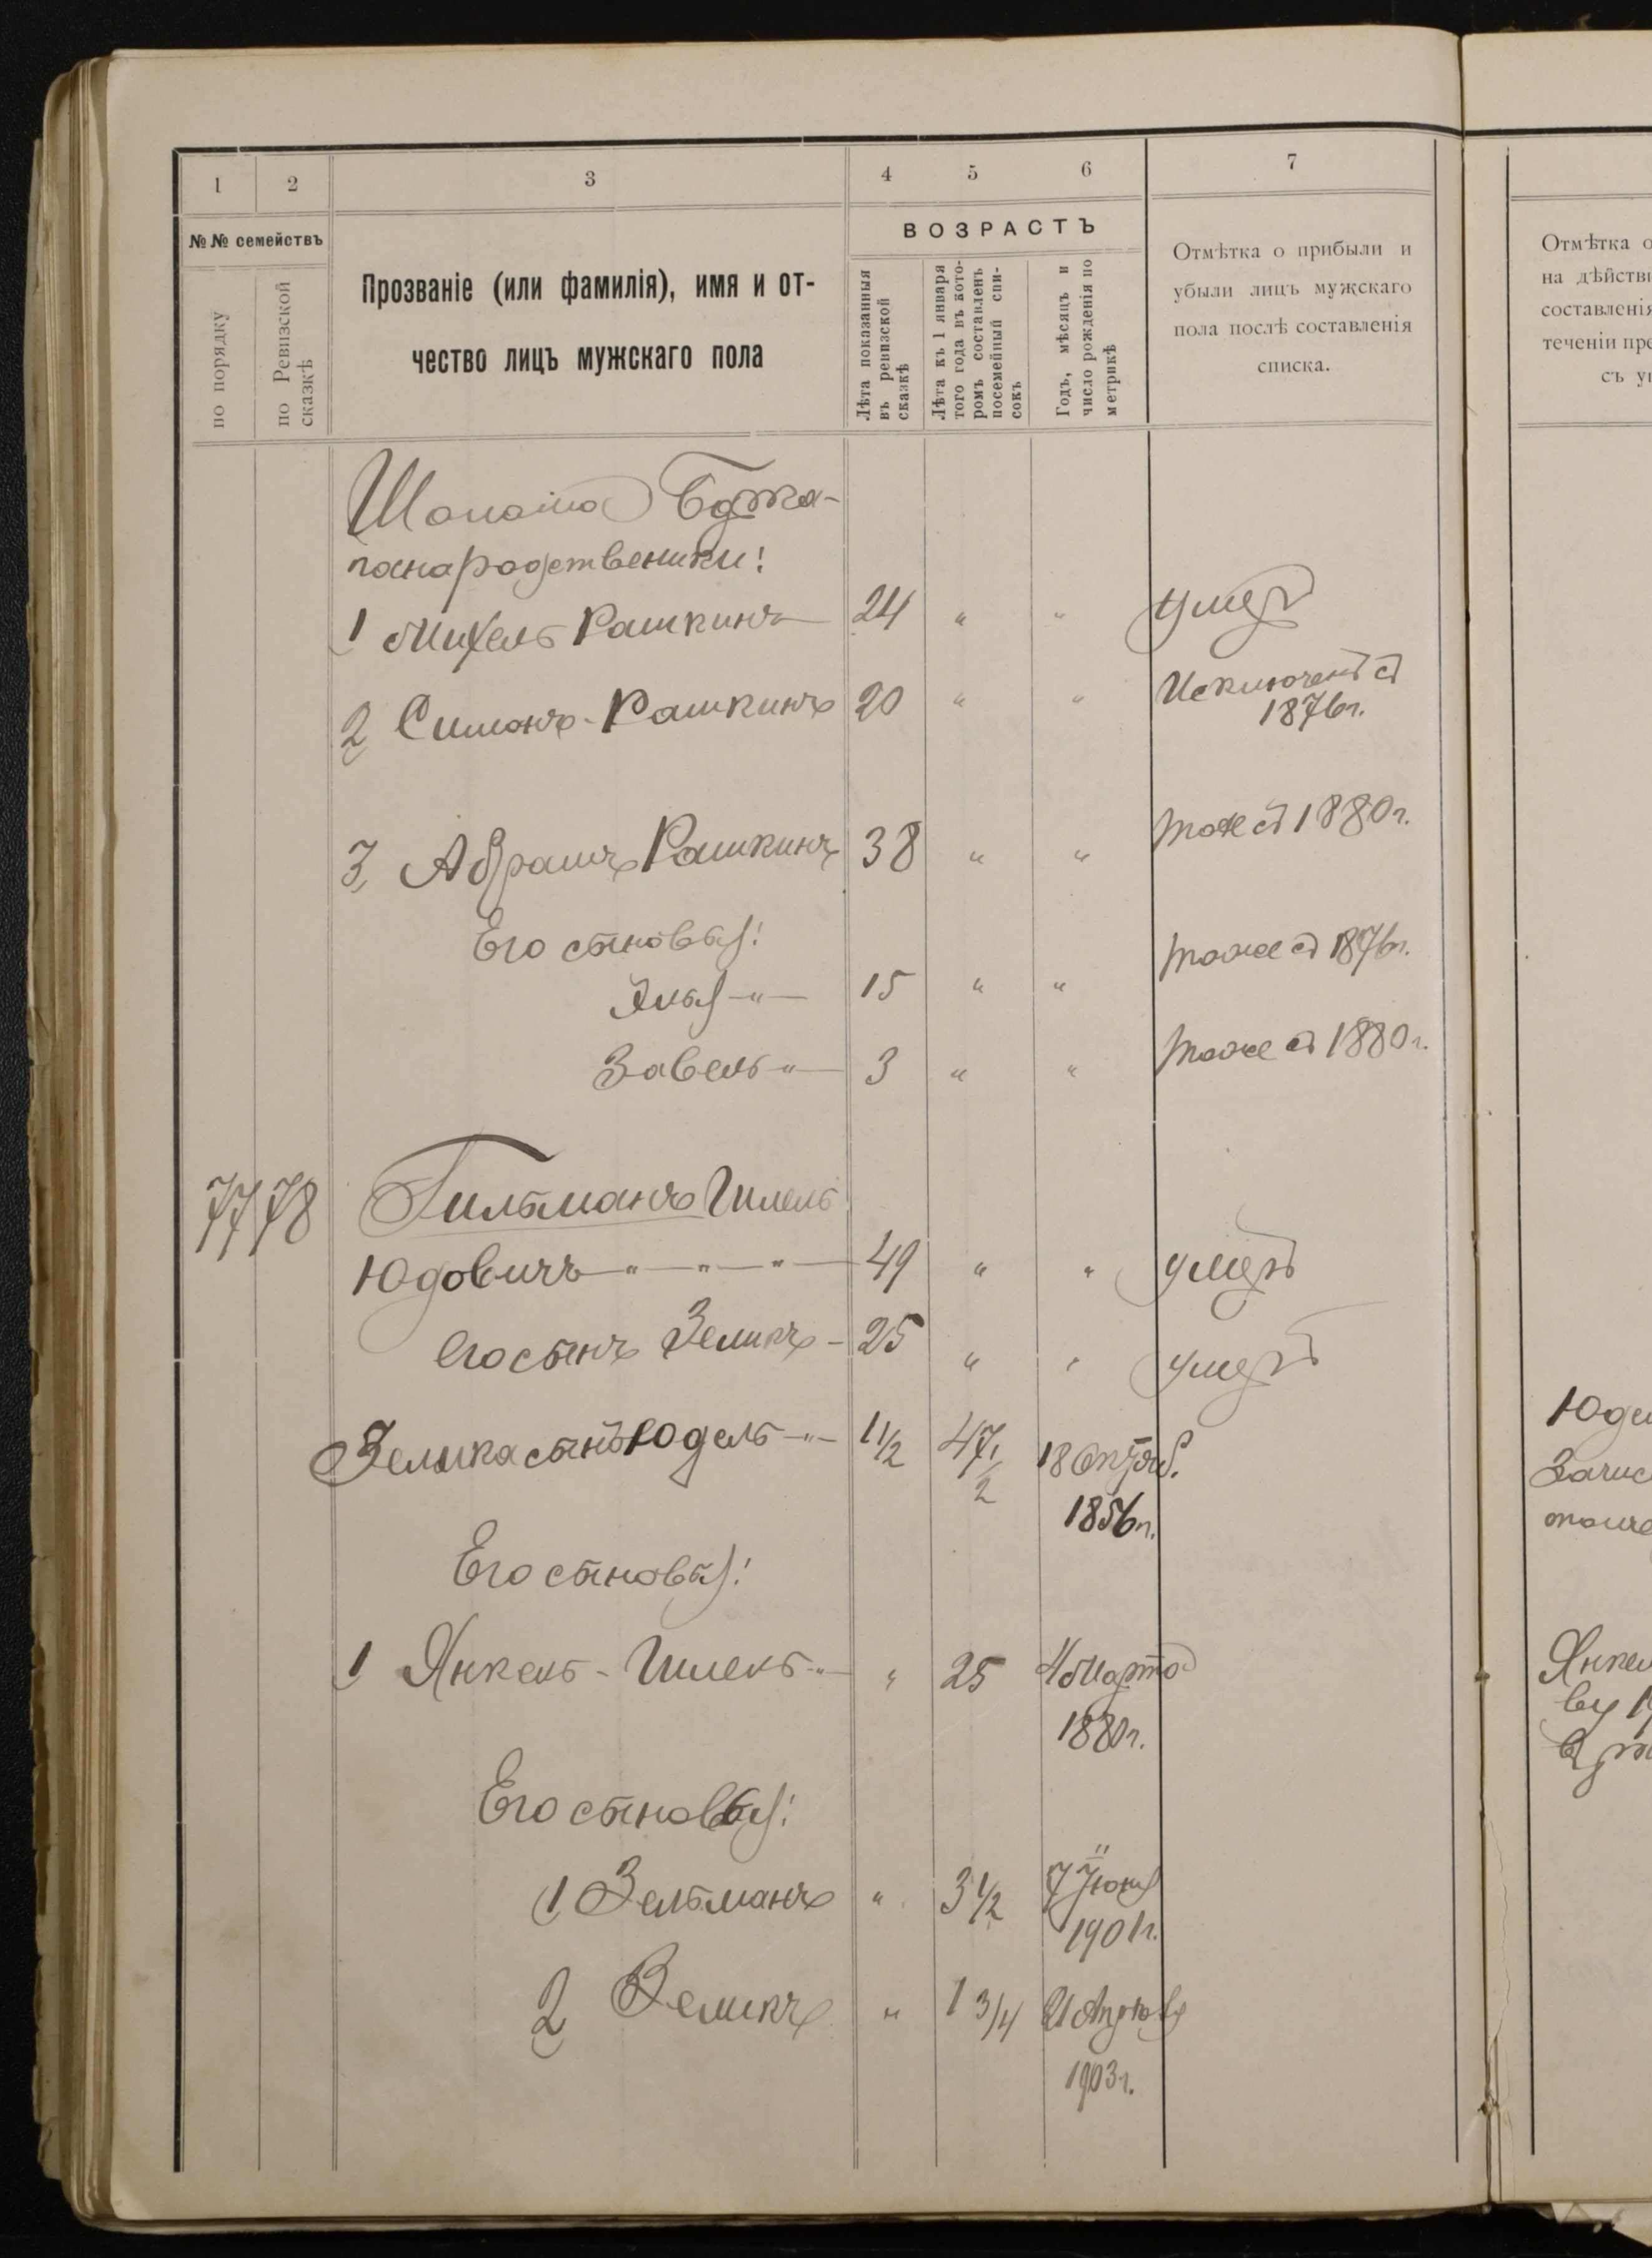 1 2 3 4 5 6 7
№№ семействъ
по порядку
по Ревизской сказкѣ
Прозваніе (или фамилія), имя и от-
чество лицъ мужскаго пола
ВОЗРАСТЪ
Лѣта показанныя
въ ревизской
сказкѣ
Лѣта къ 1 января
того года въ кото-
ромъ составленъ
посемейный спи-
сокъ
Годъ, мѣсяцъ и
число рожденія по
метрикѣ
Отмѣтка о прибыли и
убыли лицъ мужскаго
пола послѣ составленія
списка.
Отмѣтка о
на дѣйстви
составленія
теченіи пре
съ у
родственики:
1 Михель Рашкинъ 24 " " умеръ
2 Симонъ-Рашкинъ 20 " " Исключенъ съ
1876г.
3 Абрамъ Рашкинъ 38 " " тоже съ 1880г.
Его сыновья:
Элья -"- 15 " " тоже съ 1876г.
Завель " 3 " " тоже съ 1880г.
77 78 Гильманъ Гилель
Юдовичъ " " " 49 " " умеръ
его сынъ Зеликъ - 25 " " умеръ
Зелика сынъ Юдель -"- 1 1/2 47 1/2 18 Октяб.
1856г.
Его сыновья:
1 Янкель-Гилель " " 25 4 Марта
1880г.
Его сыновья:
1 Зельманъ " 3 1/2 7 Іюня
1901г.
2 Зеликъ " 1 3/4
1903г.
Юде
Зачис
Янкел